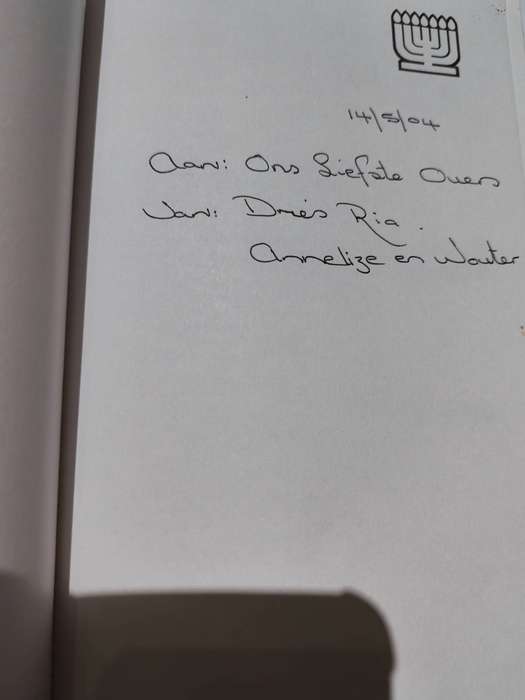 14/5/04
Aan: Ons Liefste Ouers
Van: Driés Ria.
Annelize en Wouter